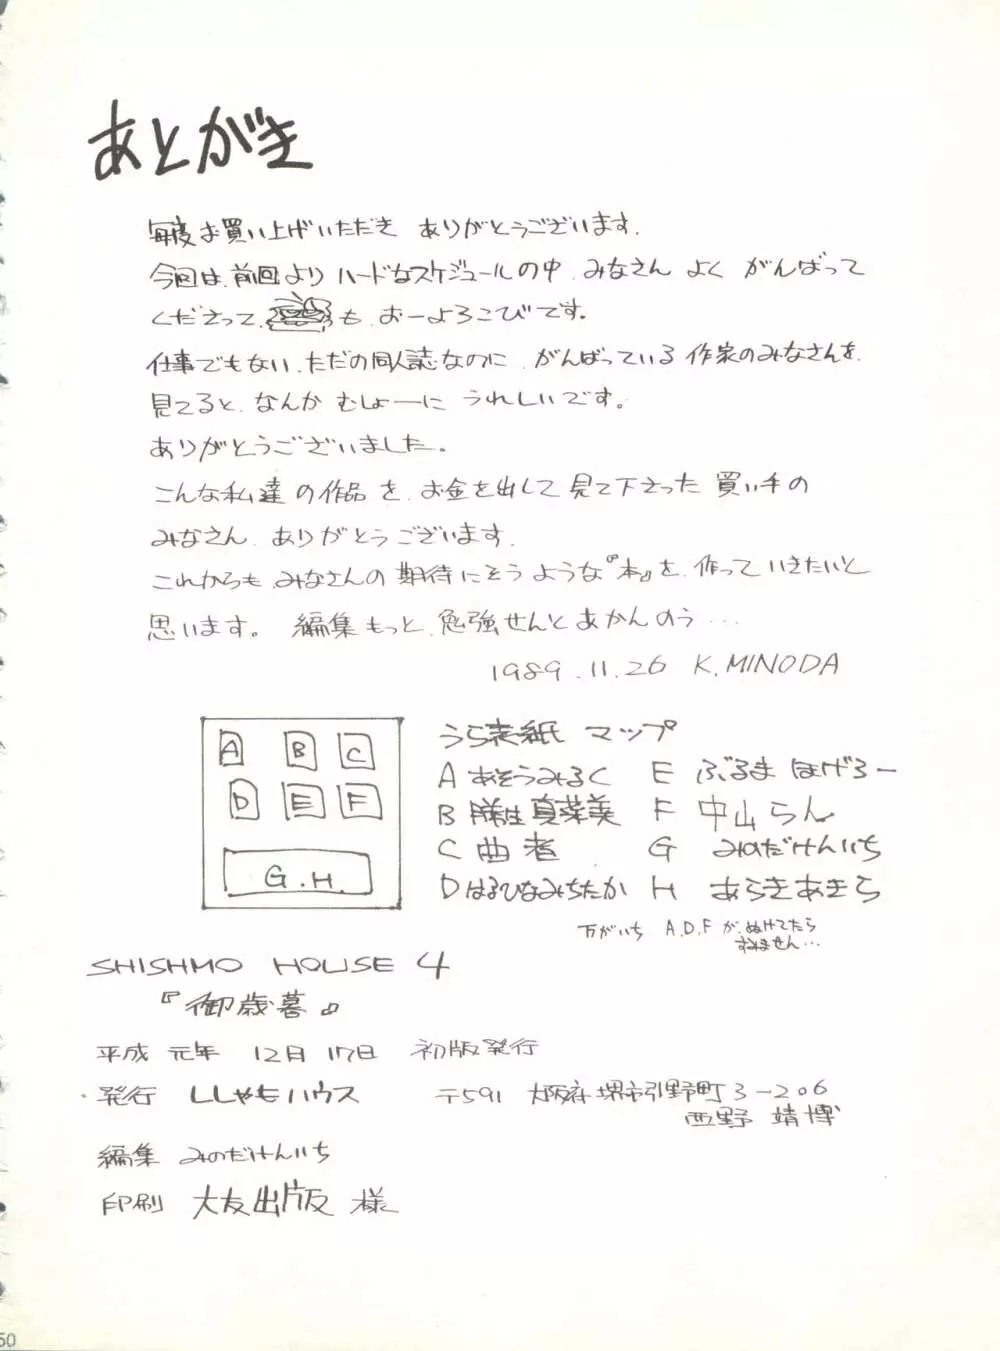 あとがき
毎度お買い上げいただき ありがとうございます.
今回は、前回より ハードなスケジュールの中、みなさん よく がんばって
くださって、も、おーよろこびです。
仕事でもない、ただの同人誌なのに、がんばっている 作家のみなさんを、
見てると、なんか むしょーに うれしいです。
ありがとうございました。
こんな私達の作品を、お金を出して見て下さった 買い手の
みなさん、ありがとうございます.
これからも、みなさんの期待にそうような『本』を、作っていきたいと
思います。 編集もっと、勉強せんとあかんのう…
1989.11.26 K.MINODA
うら表紙 マップ
A B C
D E F
G.H.
A あそうみるく E ぶるまほげろー
B 真菜美 F 中山らん
C 曲者 G みのだけんいち
D はるひなみちたか H あらきあきら
万がいち A.D.F が、ぬけてたら
すみません…
SHISHMO HOUSE 4
『御歳暮』
平成 元年 12日 17日 初版発行
・発行 ししゃもハウス 〒591 大阪府堺市引野町3-206
西野 靖博
編集 みのだけんいち
印刷 大友出版 様
50